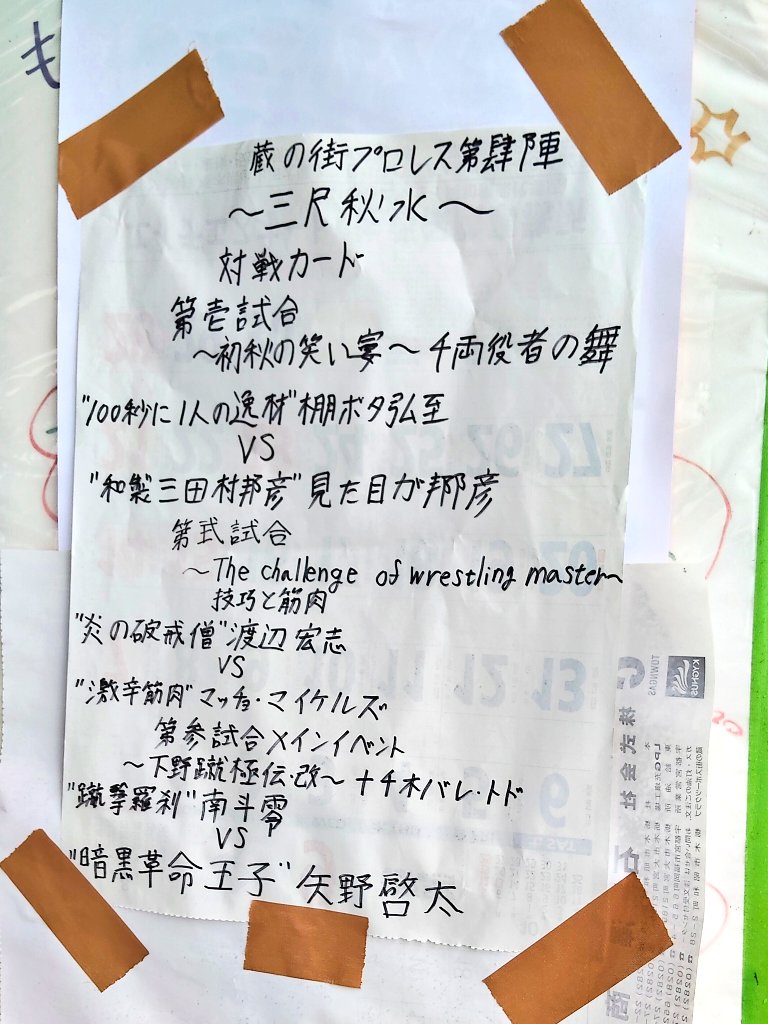 も
蔵の街プロレス第肆陣
～三尺秋水～
対戦カード
第壱試合
～初秋の笑い宴～千両役者の舞
"100秒に1人の逸材"棚ボタ弘至
VS
"和製三田村邦彦"見た目が邦彦
第弐試合
～The challenge of wrestling master～
技巧と筋肉
"炎の破戒僧"渡辺宏志
VS
"激辛筋肉"マッチョ・マイケルズ
第参試合メインイベント
～下野蹴極伝・改～十チ木バレ・トド
"蹴撃羅刹"南斗零
VS
"暗黒革命王子"矢野啓太
KYGNUS
TOWNGAS